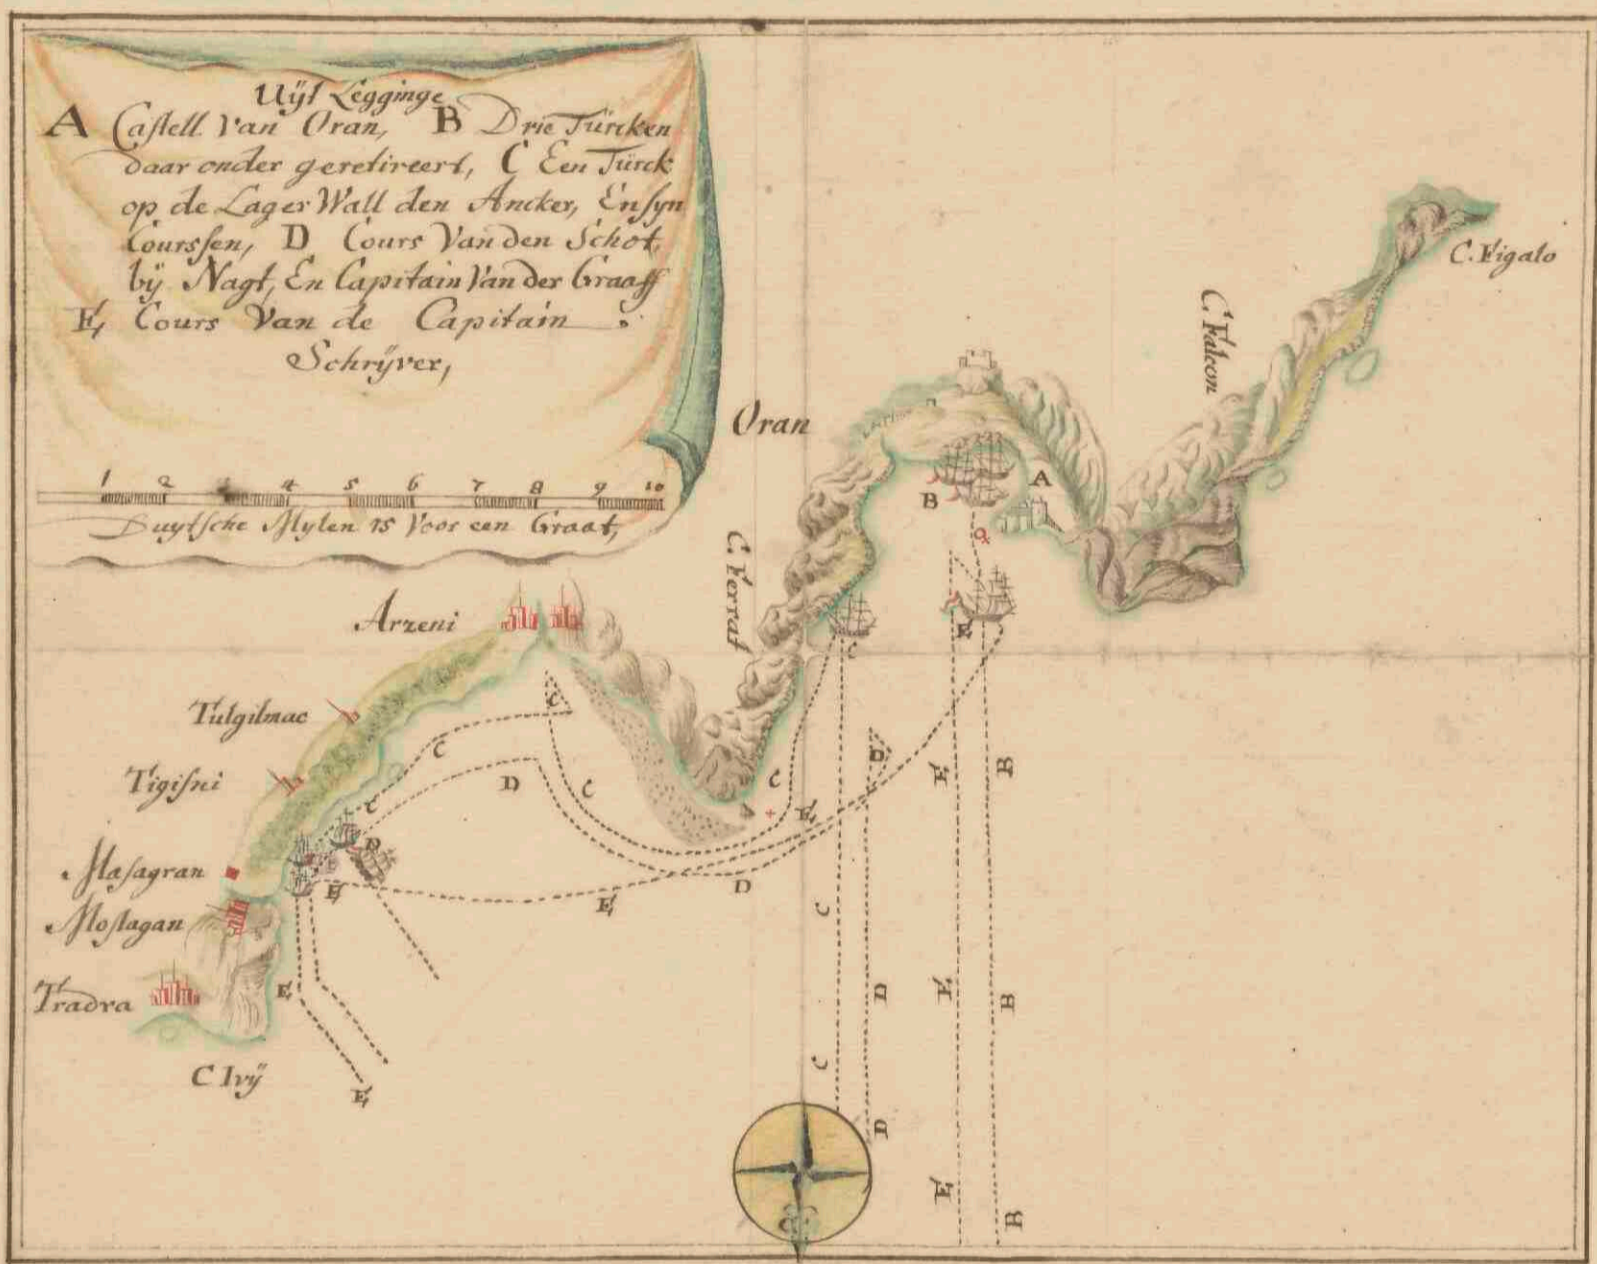 Uÿt Legginge
A Castell Van Oran, B Drie Türcken
daar onder geretireert, C Een Türck
op de Lager Wall den Ancker, En syn
Courssen, D Cours Van den Schot,
bÿ Nagt, En Capitain Van der Graaff
E, Cours Van de Capitain
Schrÿver,
1 2 3 4 5 6 7 8 9 10
Duytsche Mylen 15 Voor een Graat,
C. Figalo
C. Falcon
Oran
A
B
C. Ferrat
Arzeni
E
C
Tulgilmac
C
C
D
D
C
C
E
E
B
Tigisni
C
E
D
Masagran
E
D
E
C
Mostagan
Tradra
E
D
E
B
C Ivÿ
C
E
D
E
B